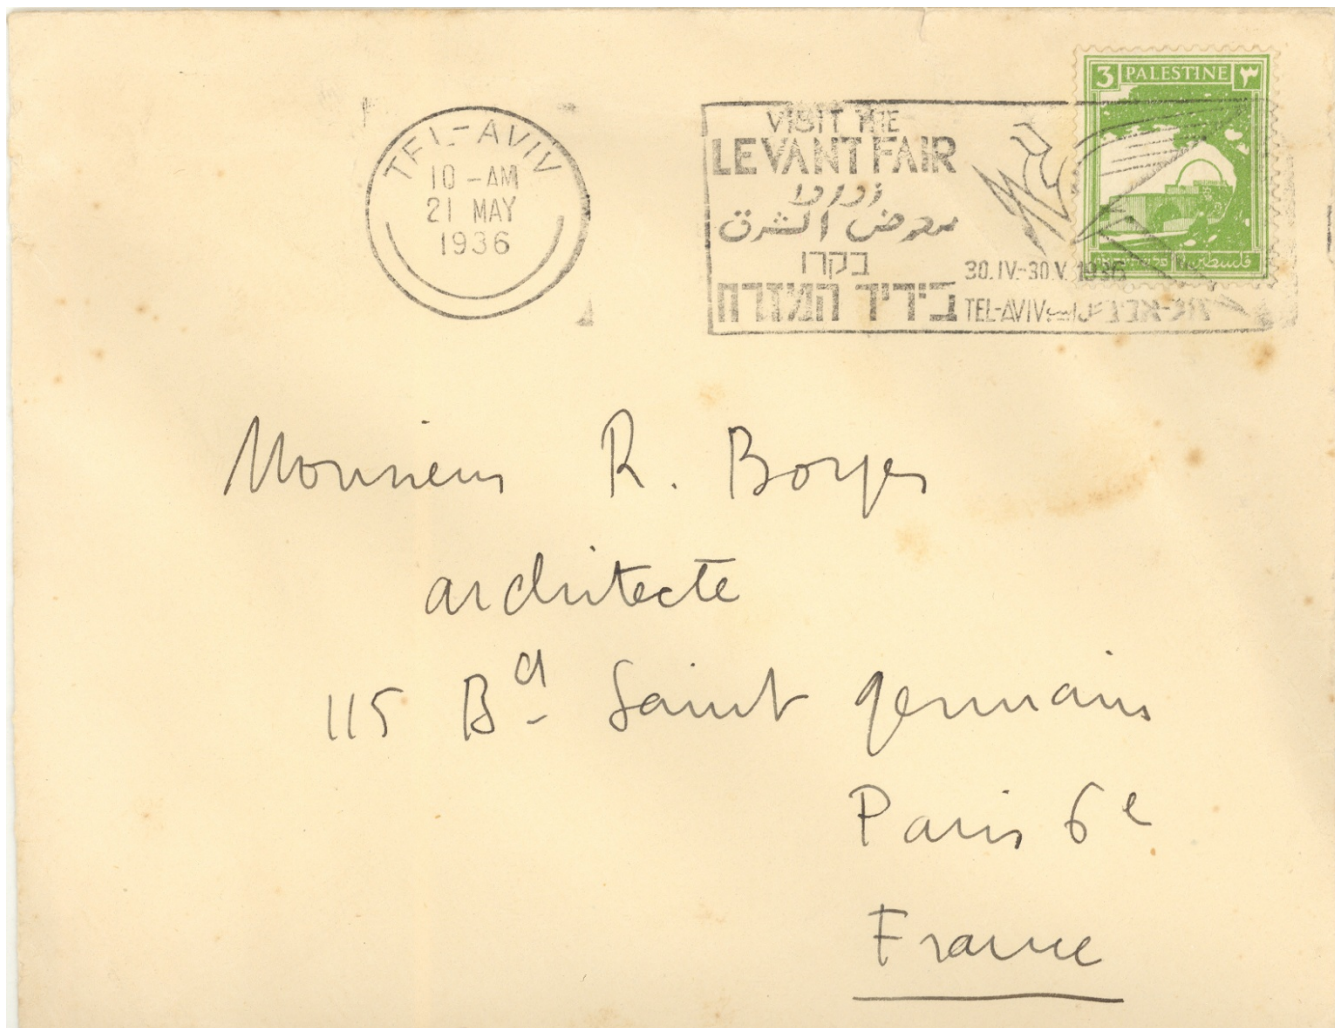 TEL-AVIV
10-AM
21 MAY
1936
VISIT THE
LEVANT FAIR
زوروا
معرض الشرق
בקרו
ביריד המזרח
30.IV.-30.V.1936
TEL-AVIV תל-אביב
3 PALESTINE ٣
فلسطين
Monsieur R. Boyer
architecte
115 Bd Saint germain
Paris 6e
France